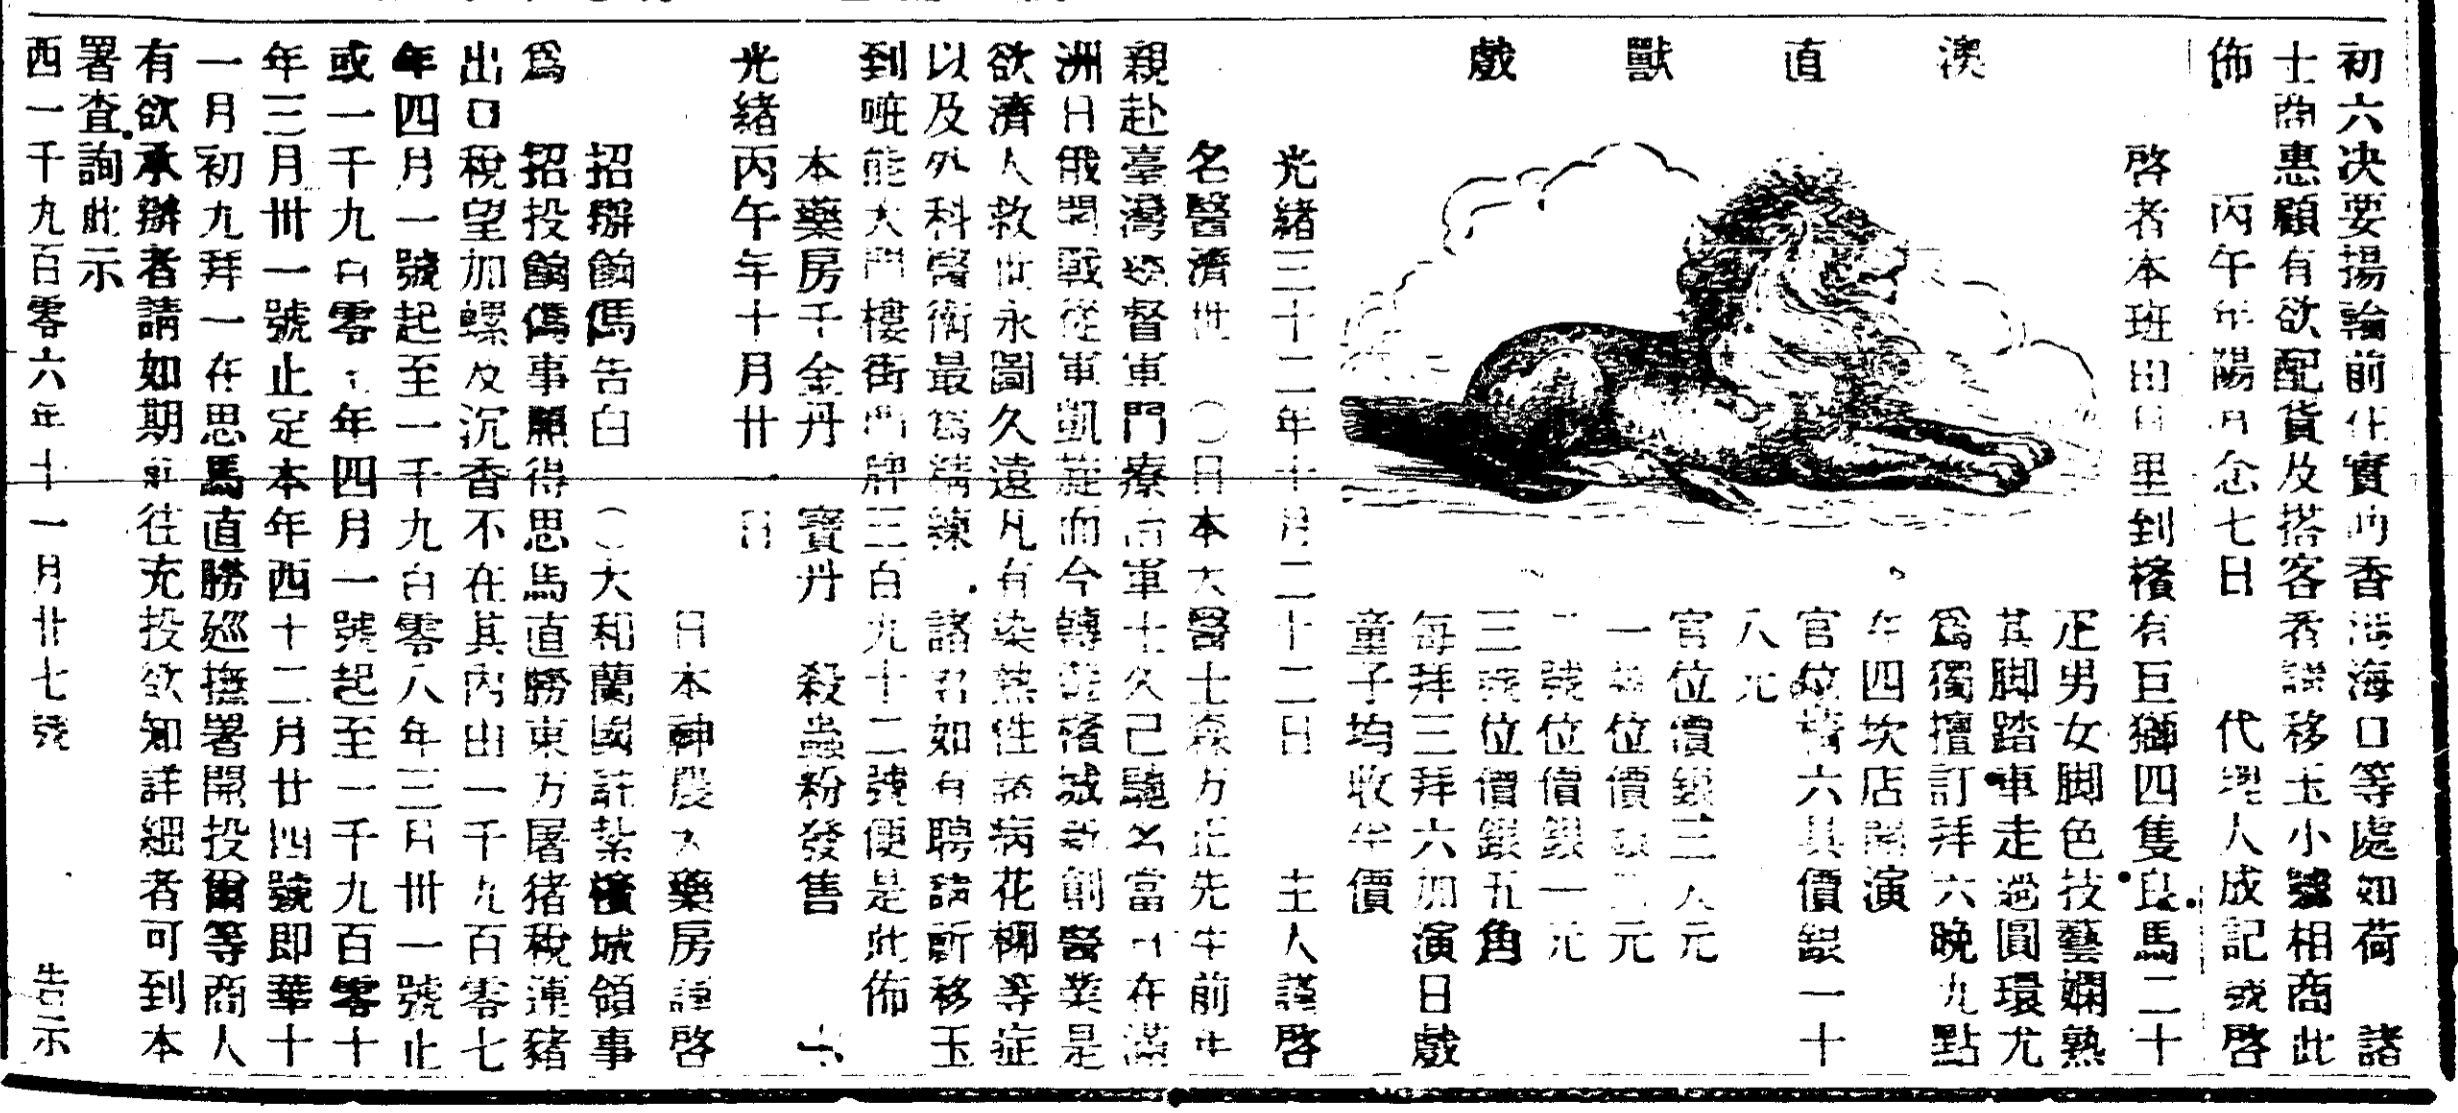 初六决要揚輪前往實叻香港海口等處如荷 諸
士商惠顧有欲配貨及搭客者請移玉小號相商此
佈 丙午年陽月念七日 代理人成記號啓
澳直獸戲
啓者本班由日里到檳有巨獅四隻良馬二十
疋男女脚色技藝嫻熟
其脚踏車走過圓環尤
爲獨擅訂拜六晚九點
在四坎店開演
官位橫六具價銀一十
八元
官位價銀三大元
一號位價銀二元
二號位價銀一元
三號位價銀五角
每拜三拜六加演日戲
童子均收半價
光緒三十二年十月二十二日 主人謹啓
名醫濟世 〇日本大醫士森方正先生前年
親赴臺灣總督軍門療治軍士久已馳名當日在滿
洲日俄開戰從軍凱旋而今轉從檳城新創醫業是
欲濟人救世永圖久遠凡有染熱性諸病花柳等症
以及外科醫術最爲精練 諸君如有聘請祈移玉
到呲能大門樓街門牌三百九十二號便是此佈
本藥房千金丹 寶丹 殺蟲粉發售
光緒丙午年十月廿一日 日本神農大藥房謹啓
招辦餉碼告白 〇大和蘭國註紮檳城領事
爲 招投餉碼事照得思馬直勝東方屠猪稅連豬
出口稅望加螺及沉香不在其內由一千九百零七
年四月一號起至一千九百零八年三月卅一號止
或一千九百零七年四月一號起至一千九百零十
年三月卅一號止定本年西十二月廿四號即華十
一月初九拜一在思馬直勝巡撫署開投爾等商人
有欲承辦者請如期前往充投欲知詳細者可到本
署查詢此示
西一千九百零六年十一月廿七號 告示